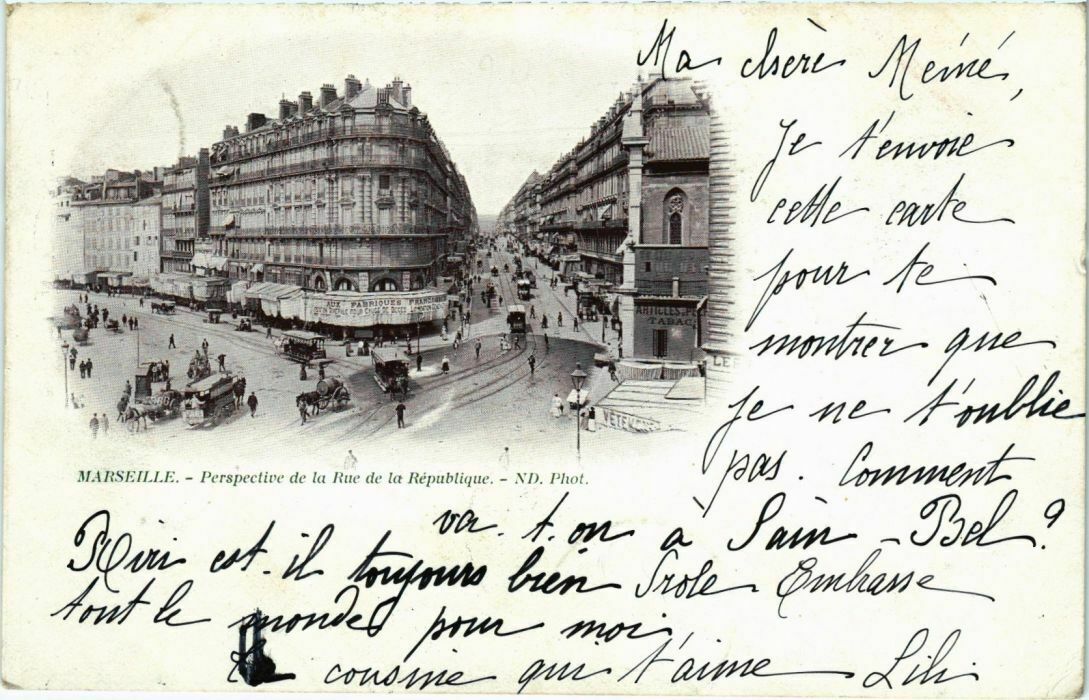 Ma chsère Méiné,
Je t'envoie
cette carte
pour te
montrer que
je ne t'oublie
pas. Comment
va-t-on à Sain-Bel?
Riri est-il toujours bien Drole Embrasse
tout le mondes pour moi
cousine qui t'aime Lili
AUX FABRIQUES FRANC
ARTICLES
TABAC
VETEM
MARSEILLE. - Perspective de la Rue de la République. - ND. Phot.